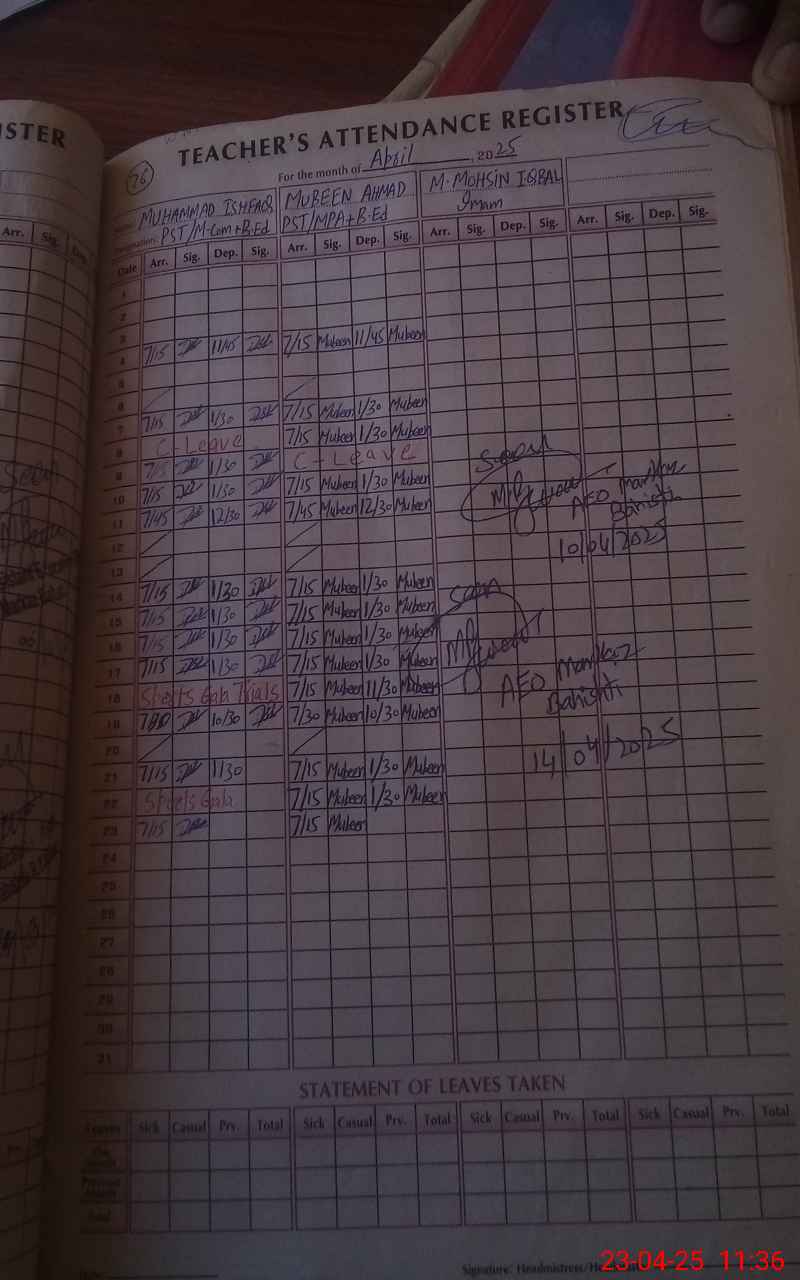 ISTER
TEACHER'S ATTENDANCE REGISTER
76
For the month of April, 2025
MUHAMMAD ISHFAQ MUBEEN AHMAD M. MOHSIN IQBAL
Designation: PST/M.Com+B.Ed PST/MPA+B.Ed Imam
Arr. Sig. Date Arr. Sig. Dep. Sig. Arr. Sig. Dep. Sig. Arr. Sig. Dep. Sig. Arr. Sig. Dep. Sig.
1
2
3
4 7/15 11/45 7/15 Mubeen 11/45 Mubeen
5
6
7 7/15 1/30 7/15 Mubeen 1/30 Mubeen
8 C-Leave 7/15 Mubeen 1/30 Mubeen
9 7/15 1/30 C-Leave
10 7/15 1/30 7/15 Mubeen 1/30 Mubeen
11 7/45 12/30 7/45 Mubeen 12/30 Mubeen
AEO Markaz
Bahishti
10/04/2025
12
13
14 7/15 1/30 7/15 Mubeen 1/30 Mubeen
15 7/15 1/30 7/15 Mubeen 1/30 Mubeen
16 7/15 1/30 7/15 Mubeen 1/30 Mubeen
17 7/15 1/30 7/15 Mubeen 1/30 Mubeen
18 Sports Gala Trials 7/15 Mubeen 11/30 Mubeen
AEO Markaz
Bahishti
19 10/30 7/30 Mubeen 10/30 Mubeen
14/04/2025
20
21 7/15 1/30 7/15 Mubeen 1/30 Mubeen
22 Sports Gala 7/15 Mubeen 1/30 Mubeen
23 7/15 7/15 Mubeen
24
25
26
27
28
29
30
31
STATEMENT OF LEAVES TAKEN
Leaves Sick Casual Prv. Total Sick Casual Prv. Total Sick Casual Prv. Total Sick Casual Prv. Total
Total
Signature: Headmistress/He
23-04-25 11:36